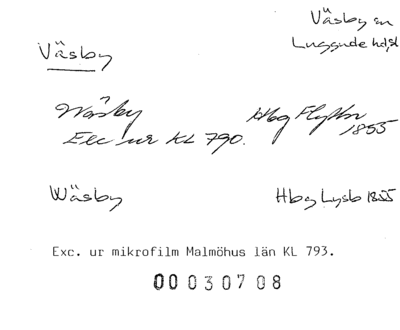 Väsby sn
Luggude hd,sk
Väsby
Wäsby
Exc ur KL 790.
Hbg 
1855
Wäsby
Hbg Lysb 1855
Exc. ur mikrofilm Malmöhus län KL 793.
00030708